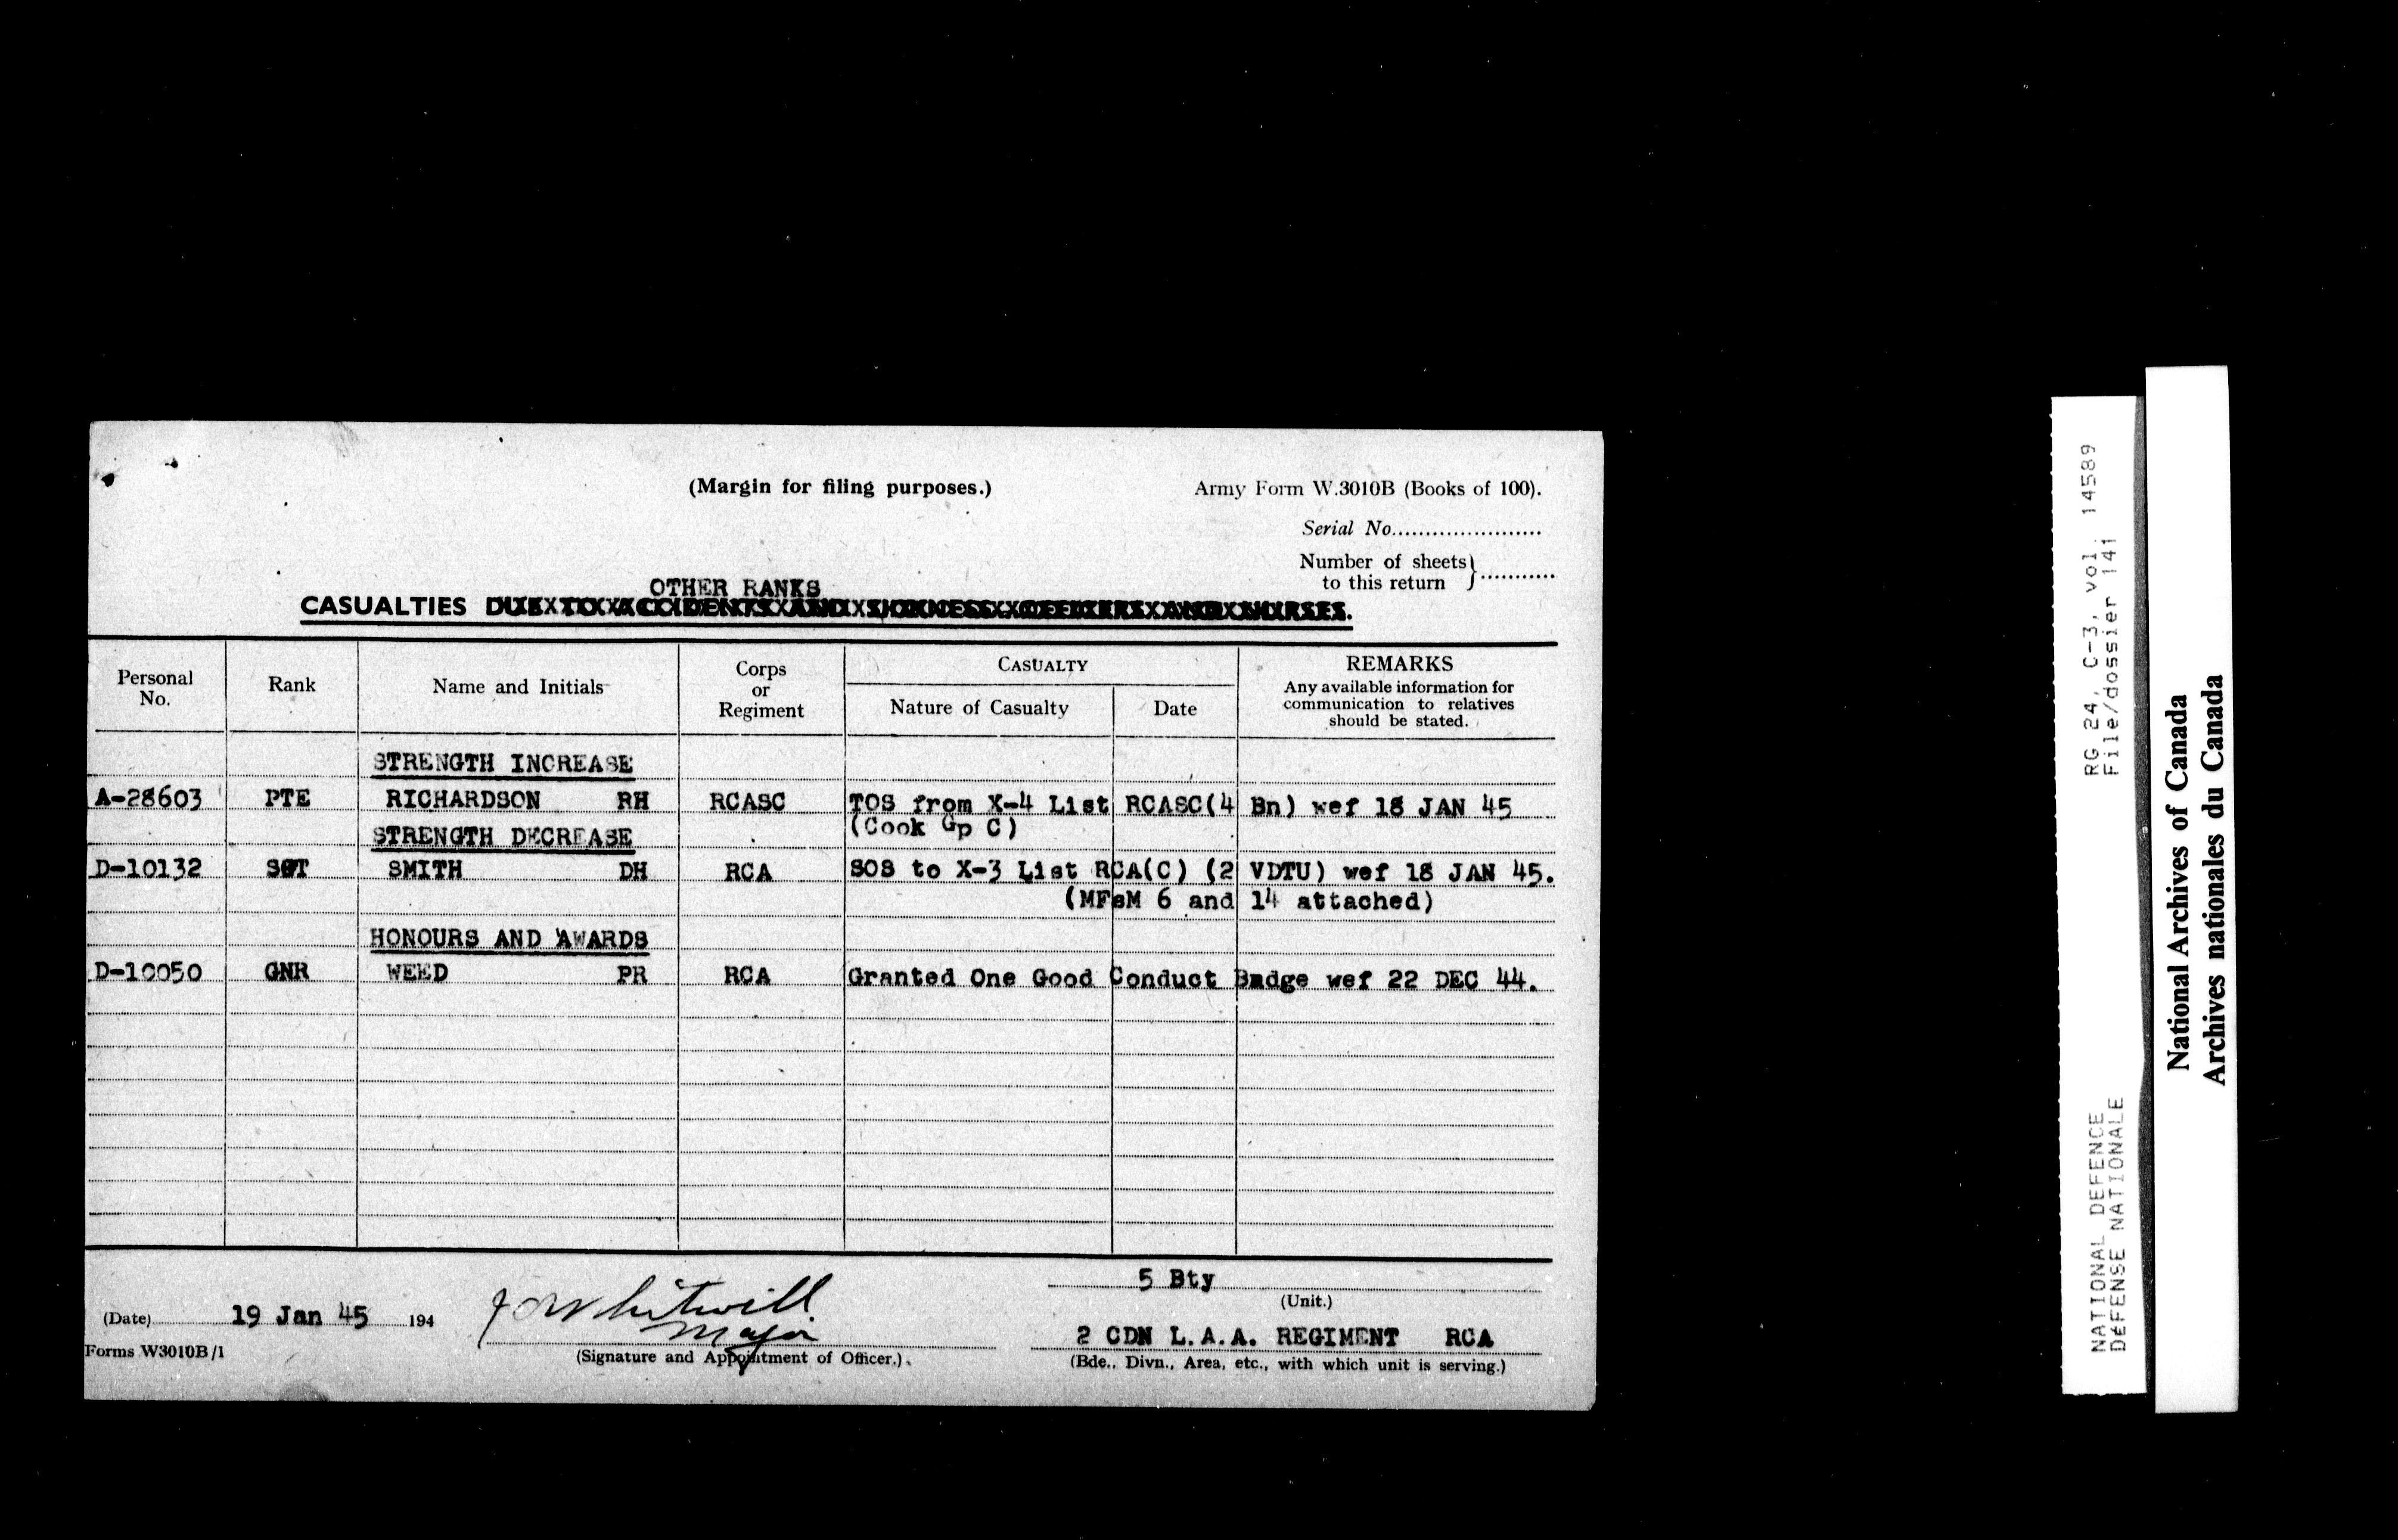 (Margin for filing purposes.)
Army Form W.3010B (Books of 100).
Serial No......................
Number of sheets
to this return } ...........
OTHER RANKS
CASUALTIES DUE TO ACCIDENTS AND SICKNESS OFFICERS AND NURSES.
Personal No. Rank Name and Initials Corps or Regiment CASUALTY Nature of Casualty Date REMARKS Any available information for communication to relatives should be stated.
STRENGTH INCREASE
A-28603 PTE RICHARDSON RH RCASC TOS from X-4 List RCASC(4 Bn) wef 18 JAN 45
(Cook Gp C)
STRENGTH DECREASE
D-10132 SGT SMITH DH RCA SOS to X-3 List RCA(C) (2 VDTU) wef 18 JAN 45.
(MFsM 6 and 14 attached)
HONOURS AND AWARDS
D-10050 GNR WEED PR RCA Granted One Good Conduct Badge wef 22 DEC 44.
5 Bty
(Unit.)
(Date) 19 Jan 45 194
Whitwill
Major
(Signature and Appointment of Officer.)
2 CDN L.A.A. REGIMENT RCA
(Bde., Divn., Area, etc., with which unit is serving.)
Forms W3010B/1
NATIONAL DEFENCE RG 24, C-3, vol. 14589
DEFENSE NATIONALE File/dossier 141
National Archives of Canada
Archives nationales du Canada